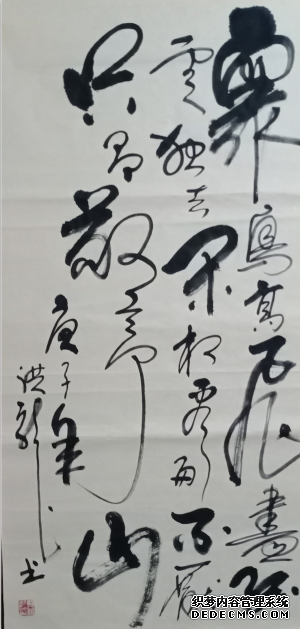 眾鳥高飛盡孤
雲独去闲相看两不厭
只有敬亭山
庚子年
洪龍书
织梦内容管理系统
DEDECMS.COM